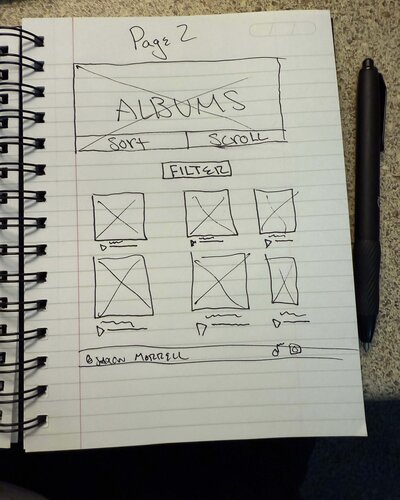 Page 2
ALBUMS
Sort Scroll
FILTER
MORRELL